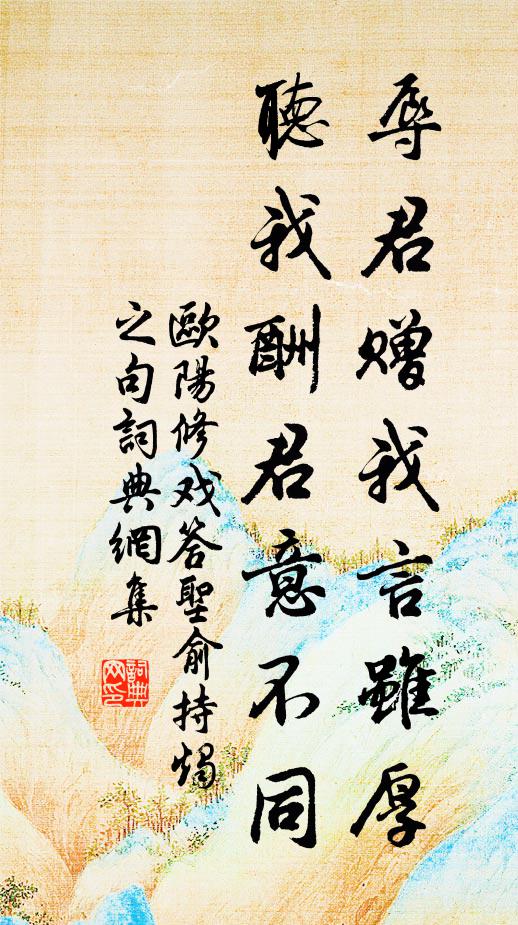 辱君赠我言雖厚
聽我酬君意不同
歐陽修戏答聖俞持燭
之句詞典網集
詞典
网印